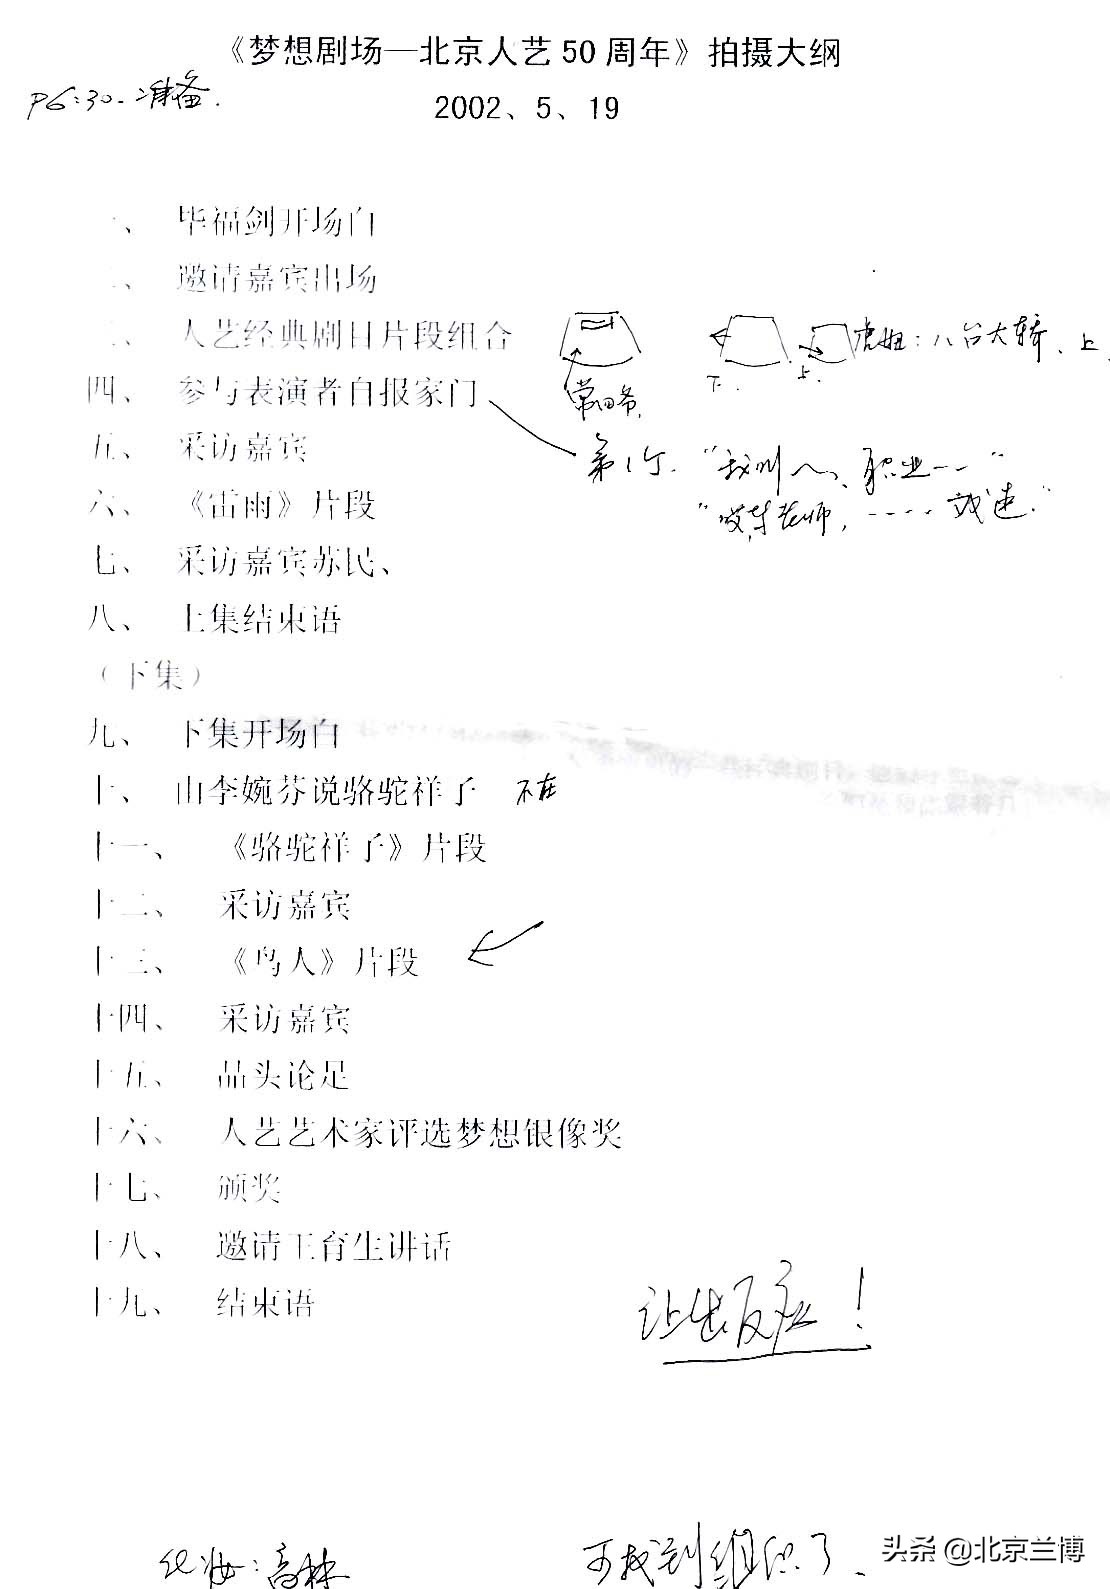 《梦想剧场—北京人艺50周年》拍摄大纲
P6:30-准备.
2002、5、19
一、 毕福剑开场白
二、 邀请嘉宾出场
三、 人艺经典剧目片段组合
虎妞:八台大轿、上
下. 上.
四、 参与表演者自报家门
常四爷.
五、 采访嘉宾
第1个. "我叫 职业--"
六、 《雷雨》片段
老师, ----
七、 采访嘉宾苏民、
八、 上集结束语
（下集）
九、 下集开场白
十、 由李婉芬说骆驼祥子 不在
十一、 《骆驼祥子》片段
十二、 采访嘉宾
十三、 《鸟人》片段
十四、 采访嘉宾
十五、 品头论足
十六、 人艺艺术家评选梦想银像奖
十七、 颁奖
十八、 邀请王育生讲话
十九、 结束语
让出反应!
化妆:高林
可找到组织了、
头条 @北京兰博